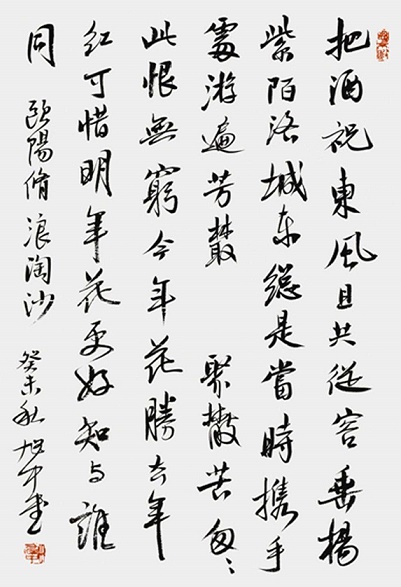 把酒祝東風且共從容垂楊
紫陌洛城东總是當時攜手
處游遍芳叢 聚散苦匆〻
此恨無窮今年花勝去年
红可惜明年花更好知与誰
同 歐陽脩浪淘沙 癸未秋 旭中书